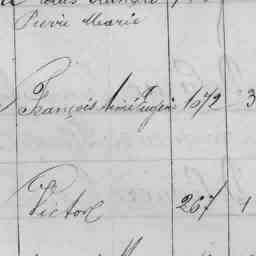 Pierre Marie
François Aimé Eugène 1072 3
Victor 267 1